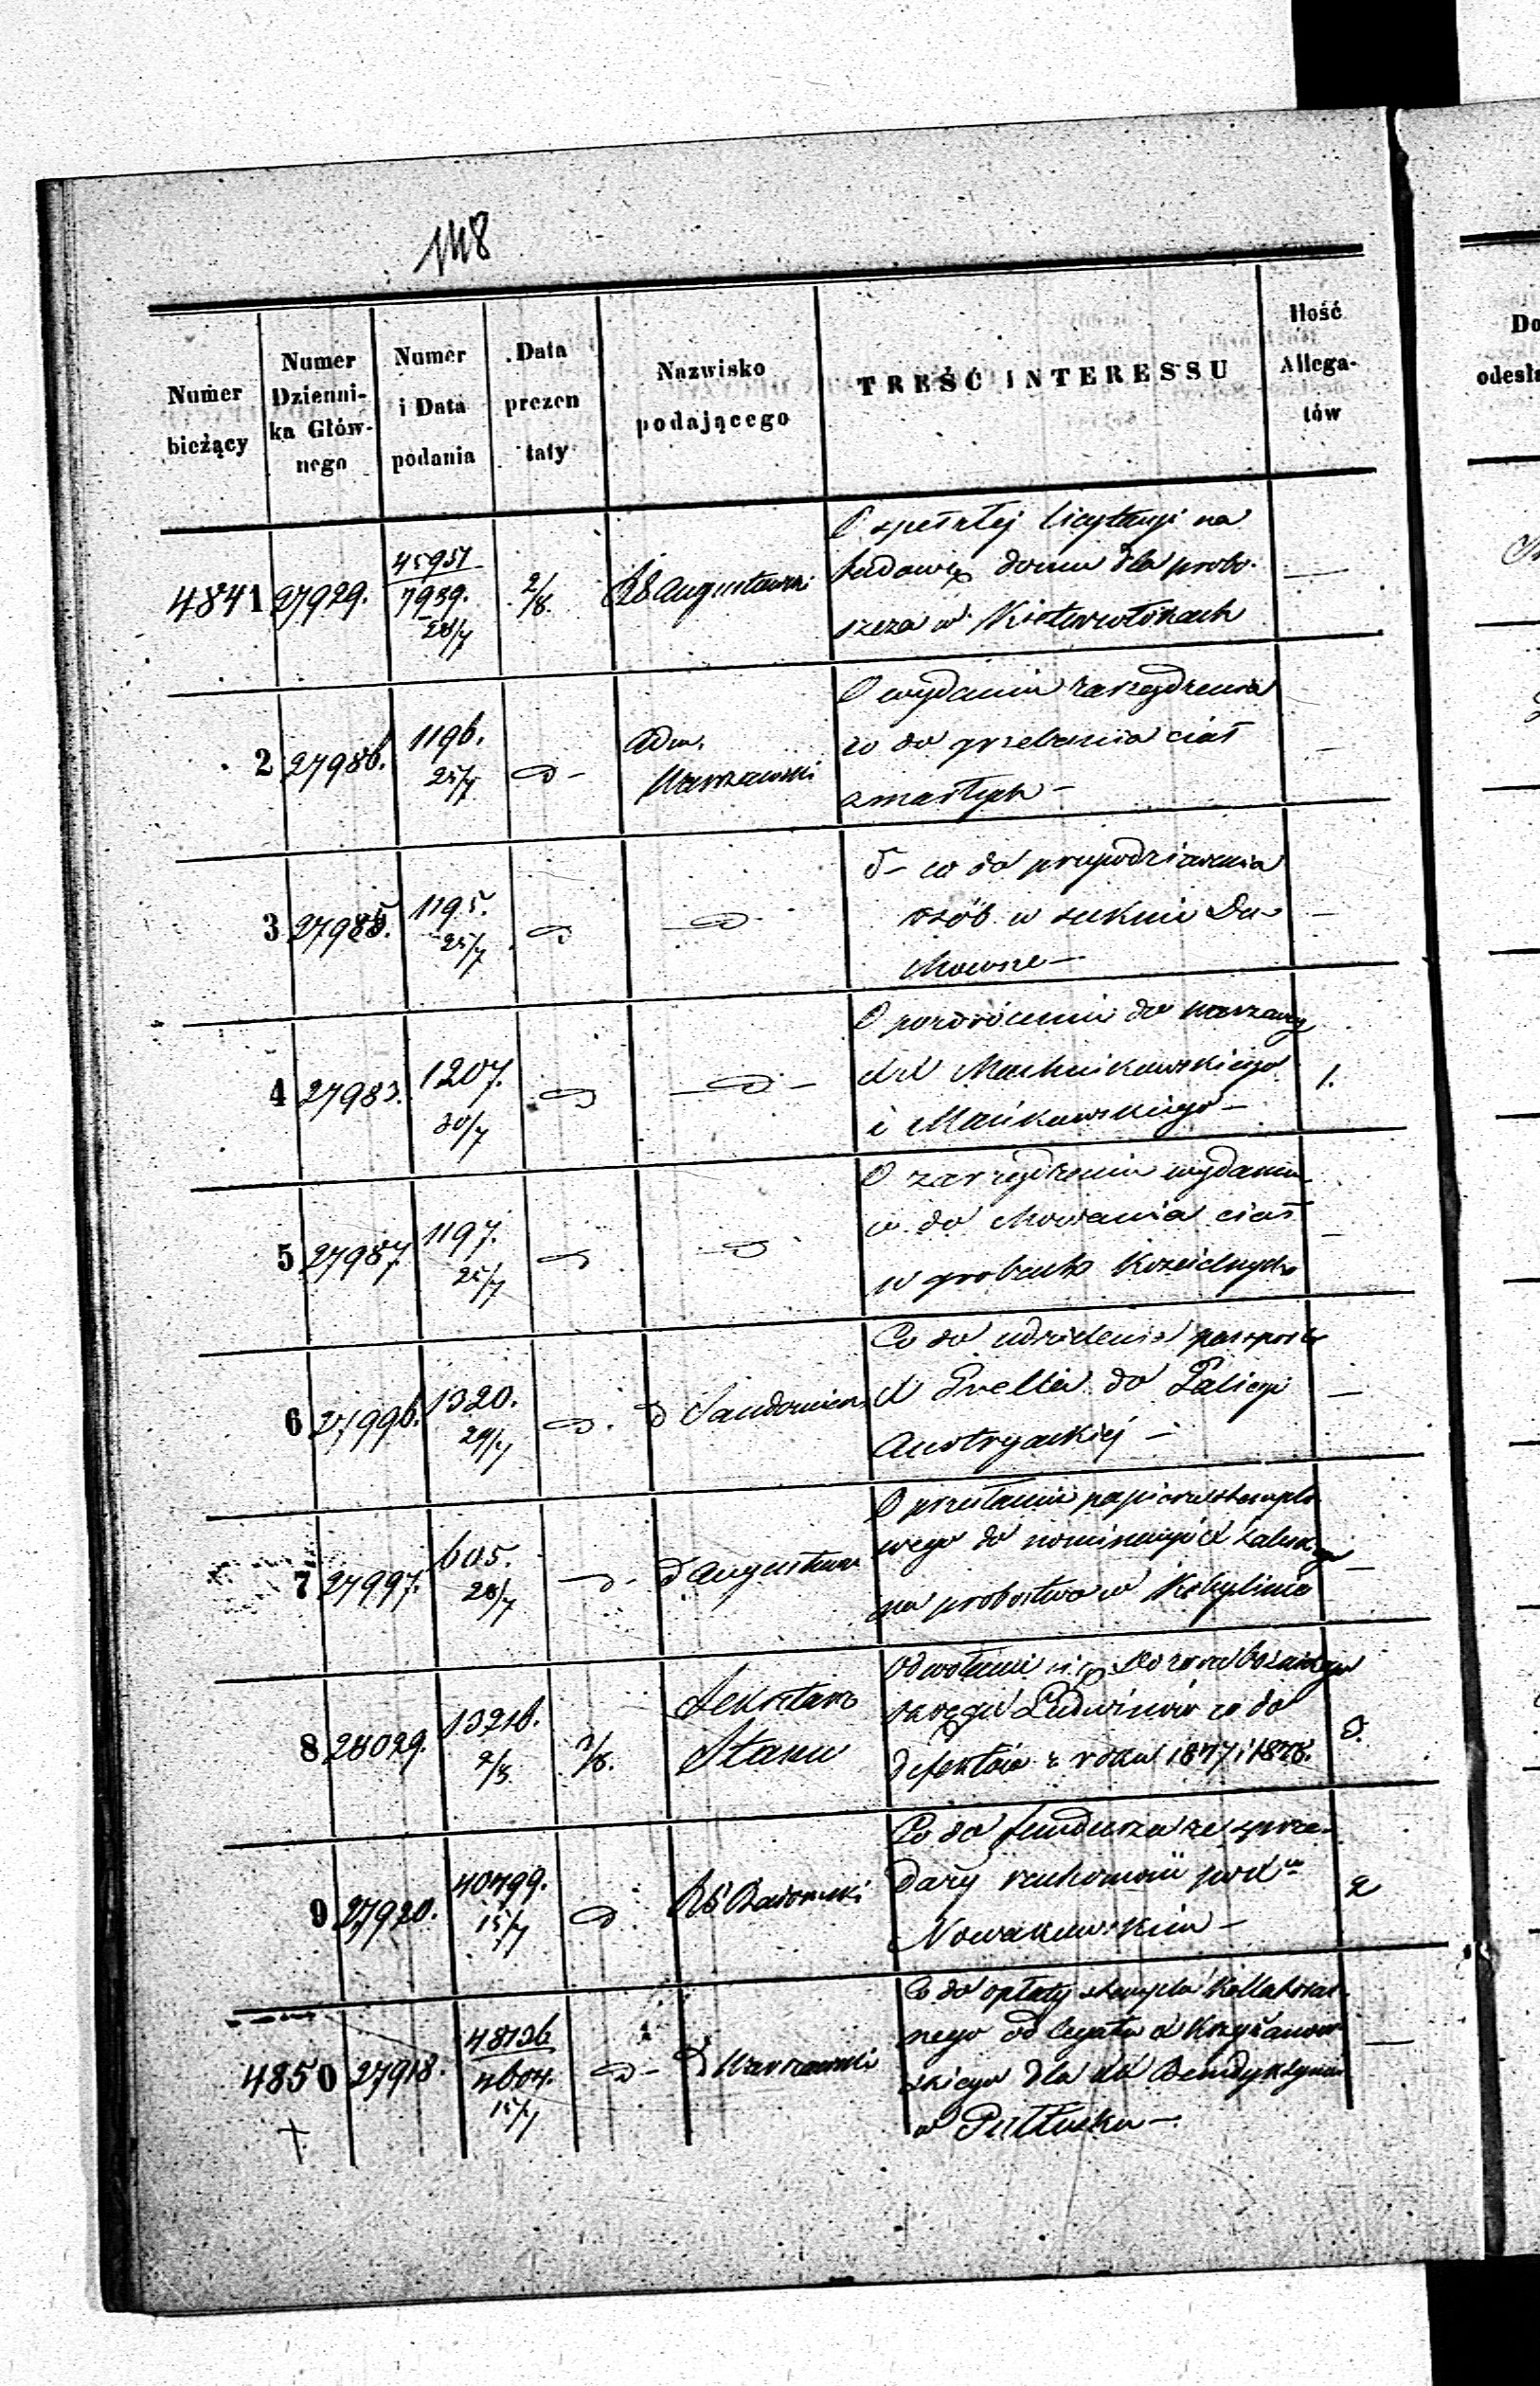 148
Numer bieżący
Numer Dzienni- ka Głów- nego
Numer i Data podania
Data prezen taty
Nazwisko podającego
TREŚĆ INTERESSU
Ilość Allega- tów
Do
odesła
4841 27929. 45951 7939. 28/7 2/8. RG Augustowski
O spełzłej licytacyi na
budowę domu dla probo-
szcza w Kietrwołokach —
2 27986. 1196. 25/7 d- Adm. Warszawski
O wydaniu zarządzenia
co do grzebania ciał
zmarłych — –
3 27985. 1195. 25/7 d —d-
d- co do przyodziewania
osób w suknie Du-
chowne — –
4 27983. 1207. 30/7 d —d-
O powróceniu do Warszawy
XX Machnikowskiego
i Mańkowskiego — 1.
5 27987. 1197. 25/7 d —d
O zarządzeniu wydaniu
co do chowania ciał
w grobach Kościelnych –
6 27996. 1320. 29/7 d. d Sandomiers
Co do udzielenia passportu
X do Galicyi
Austryackiej — —
7 27997. 605. 28/7 d- d Augustow
O przesłaniu papieru stemplo
wego do nominacyi X
na probostwo w Kobylinie —
8 28029. 13216. 2/8 2/8. Sekretarz Stanu
Odwołanie się Dozoru bóżniczego
okręgu Ludwinów co do
defektów z roku 1847 i 1848. d.
9 27920. 40499. 15/7 d RG Radomski
Co do funduszu ze sprze-
daży ruchomości po X
Nowakowskim — 2
4850 27918. 48136 4604. 15/7 d- d Warszawski
Co do opłaty stempla kollateral-
nego od legatu X Krzyżanow
skiego dla XX Benedyktynów
w Pułtusku — —